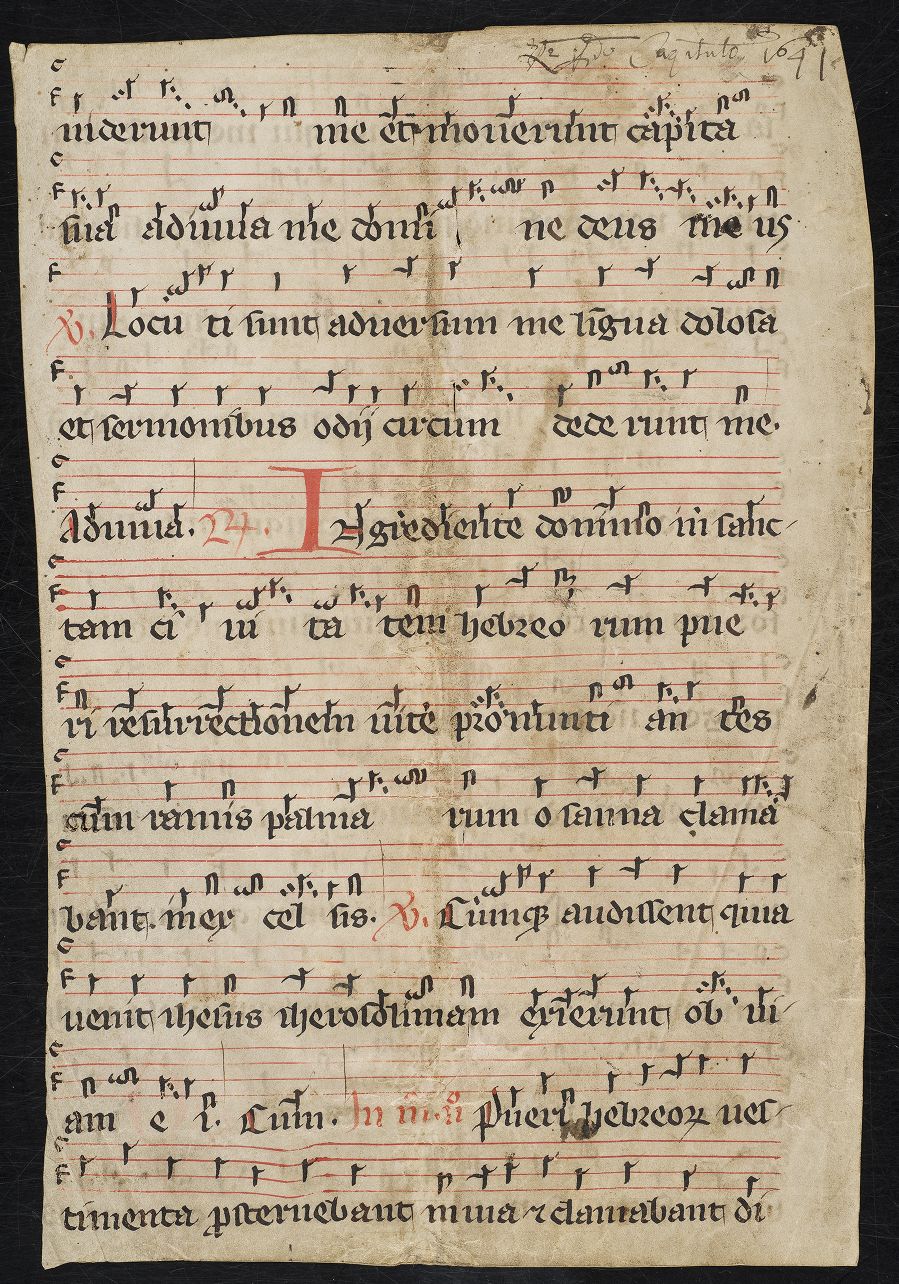 Capitulo 1641
uiderunt me et mouerunt capita
sua adiuua me domi ne deus me us
V. Locu ti sunt aduersum me lingua dolosa
et sermonibus odij circum dede runt me.
Adiuua. R. INgrediente domino in sanc-
tam ci ui ta tem hebreo rum pue
ri resurrectionem uite pronunti an tes
cum ramis palma rum osanna clama
bant. in ex cel sis. V. Cumq; audissent quia
uenit ihesus iherosolimam exierunt ob ui-
am e i. Cum. In Pueri hebreoꝝ ues-
timenta ꝓsternebant in uia ⁊ clamabant di